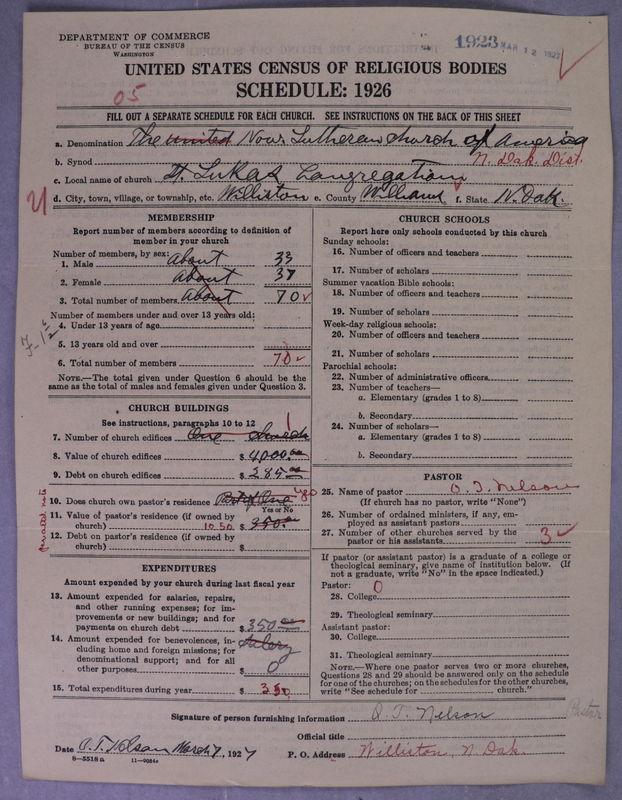 DEPARTMENT OF COMMERCE
BUREAU OF THE CENSUS
WASHINGTON
1923 MAR 12 1927
UNITED STATES CENSUS OF RELIGIOUS BODIES
SCHEDULE: 1926
05
FILL OUT A SEPARATE SCHEDULE FOR EACH CHURCH. SEE INSTRUCTIONS ON THE BACK OF THIS SHEET
a. Denomination The United Nour Lutheran church of America
b. Synod N. Dak. Dist.
c. Local name of church St. Lukas Congregation
d. City, town, village, or township, etc. Williston e. County Williams f. State N. Dak.
MEMBERSHIP
Report number of members according to definition of
member in your church
Number of members, by sex:
1. Male about 33
2. Female about 37
3. Total number of members about 70
Number of members under and over 13 years old:
4. Under 13 years of age
5. 13 years old and over
6. Total number of members 70
NOTE.—The total given under Question 6 should be the
same as the total of males and females given under Question 3.
CHURCH BUILDINGS
See instructions, paragraphs 10 to 12
7. Number of church edifices One church 1
8. Value of church edifices $ 4000.00
9. Debt on church edifices $ 285.00
10. Does church own pastor's residence Part of One yes
Yes or No
11. Value of pastor's residence (if owned by
church) 1050 $ 350.00
12. Debt on pastor's residence (if owned by
church) $
EXPENDITURES
Amount expended by your church during last fiscal year
13. Amount expended for salaries, repairs,
and other running expenses; for im-
provements or new buildings; and for
payments on church debt $ 350.00
14. Amount expended for benevolences, in-
cluding home and foreign missions; for
denominational support; and for all
other purposes Salery $ 0
15. Total expenditures during year $ 350
CHURCH SCHOOLS
Report here only schools conducted by this church
Sunday schools:
16. Number of officers and teachers
17. Number of scholars
Summer vacation Bible schools:
18. Number of officers and teachers
19. Number of scholars
Week-day religious schools:
20. Number of officers and teachers
21. Number of scholars
Parochial schools:
22. Number of administrative officers
23. Number of teachers—
a. Elementary (grades 1 to 8)
b. Secondary
24. Number of scholars—
a. Elementary (grades 1 to 8)
b. Secondary
PASTOR
25. Name of pastor O. T. Nelson
(If church has no pastor, write "None")
26. Number of ordained ministers, if any, em-
ployed as assistant pastors
27. Number of other churches served by the
pastor or his assistants 3
If pastor (or assistant pastor) is a graduate of a college or
theological seminary, give name of institution below. (If
not a graduate, write "No" in the space indicated.)
Pastor: 0
28. College
29. Theological seminary
Assistant pastor:
30. College
31. Theological seminary
NOTE.—Where one pastor serves two or more churches,
Questions 28 and 29 should be answered only on the schedule
for one of the churches; on the schedules for the other churches,
write "See schedule for church."
Signature of person furnishing information O. T. Nelson
Official title Pastor
Date O. T. Nelson March 7, 1927 P. O. Address Williston, N. Dak.
8-5518a 11-9064a